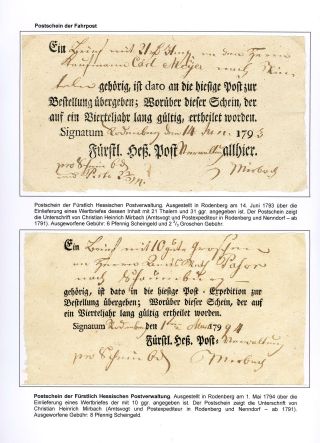 Postschein der Fahrpost
Ein Brief mit an den Herrn
Kaufmann Carl Meyer nach
gehörig, ist dato an die hiesige Post zur
Bestellung übergeben; Worüber dieser Schein, der
auf ein Vierteljahr lang gültig, ertheilet worden.
Signatum Rodenberg den 14 Juni 1793
Fürstl. Heß. Post Verwaltung allhier.
pro Schein 8 d
und Porto 2 2/3 Mirbach
Postschein der Fürstlich Hessischen Postverwaltung. Ausgestellt in Rodenberg am 14. Juni 1793 über die
Einlieferung eines Wertbriefes dessen Inhalt mit 21 Thalern und 31 ggr. angegeben ist. Der Postschein zeigt
die Unterschrift von Christian Heinrich Mirbach (Amtsvogt und Postexpediteur in Rodenberg und Nenndorf – ab
1791). Ausgeworfene Gebühr: 8 Pfennig Scheingeld und 2 2/3 Groschen Gebühr.
Ein Brief mit 10 Groschen
an Herrn
nach
gehörig, ist dato in die hiesige Post - Expedition zur
Bestellung übergeben; Worüber dieser Schein, der auf
ein Vierteljahr lang gültig ertheilet worden.
Signatum Rodenberg den 1 May 1794
Fürstl. Heß. Post- Verwaltung
pro Schein 8 d Mirbach
Postschein der Fürstlich Hessischen Postverwaltung Ausgestellt in Rodenberg am 1. Mai 1794 über die
Einlieferung eines Wertbriefes der mit 10 ggr. angegeben ist. Der Postschein zeigt die Unterschrift von
Christian Heinrich Mirbach (Amtsvogt und Postexpediteur in Rodenberg und Nenndorf – ab 1791).
Ausgeworfene Gebühr: 8 Pfennig Scheingeld.